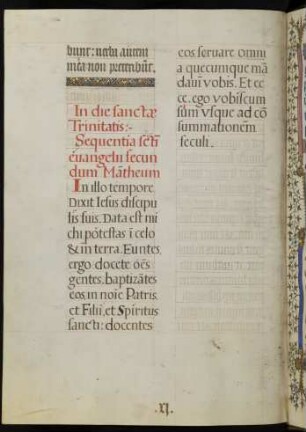 bunt: verba autem
mea non preteribūt.
In die sanctæ
Trinitatis:-
Sequentia sc̄ti
euangelii secun
dum Mātheum
In illo tempore.
Dixit Iesus discipu
lis suis. Data est mi
chi pōtestas ī celo
& in̄ terra. Euntes
ergo docete oēs
gentes, baptizātes
eos, in noīe Patris.
et Filii, et Spiritus
sancti: docentes
eos seruare omni
a quecumque mā
daui vobis. Et ec
ce. ego vobiscum
sum vsque ad cō
summationem
seculi.
.xj.